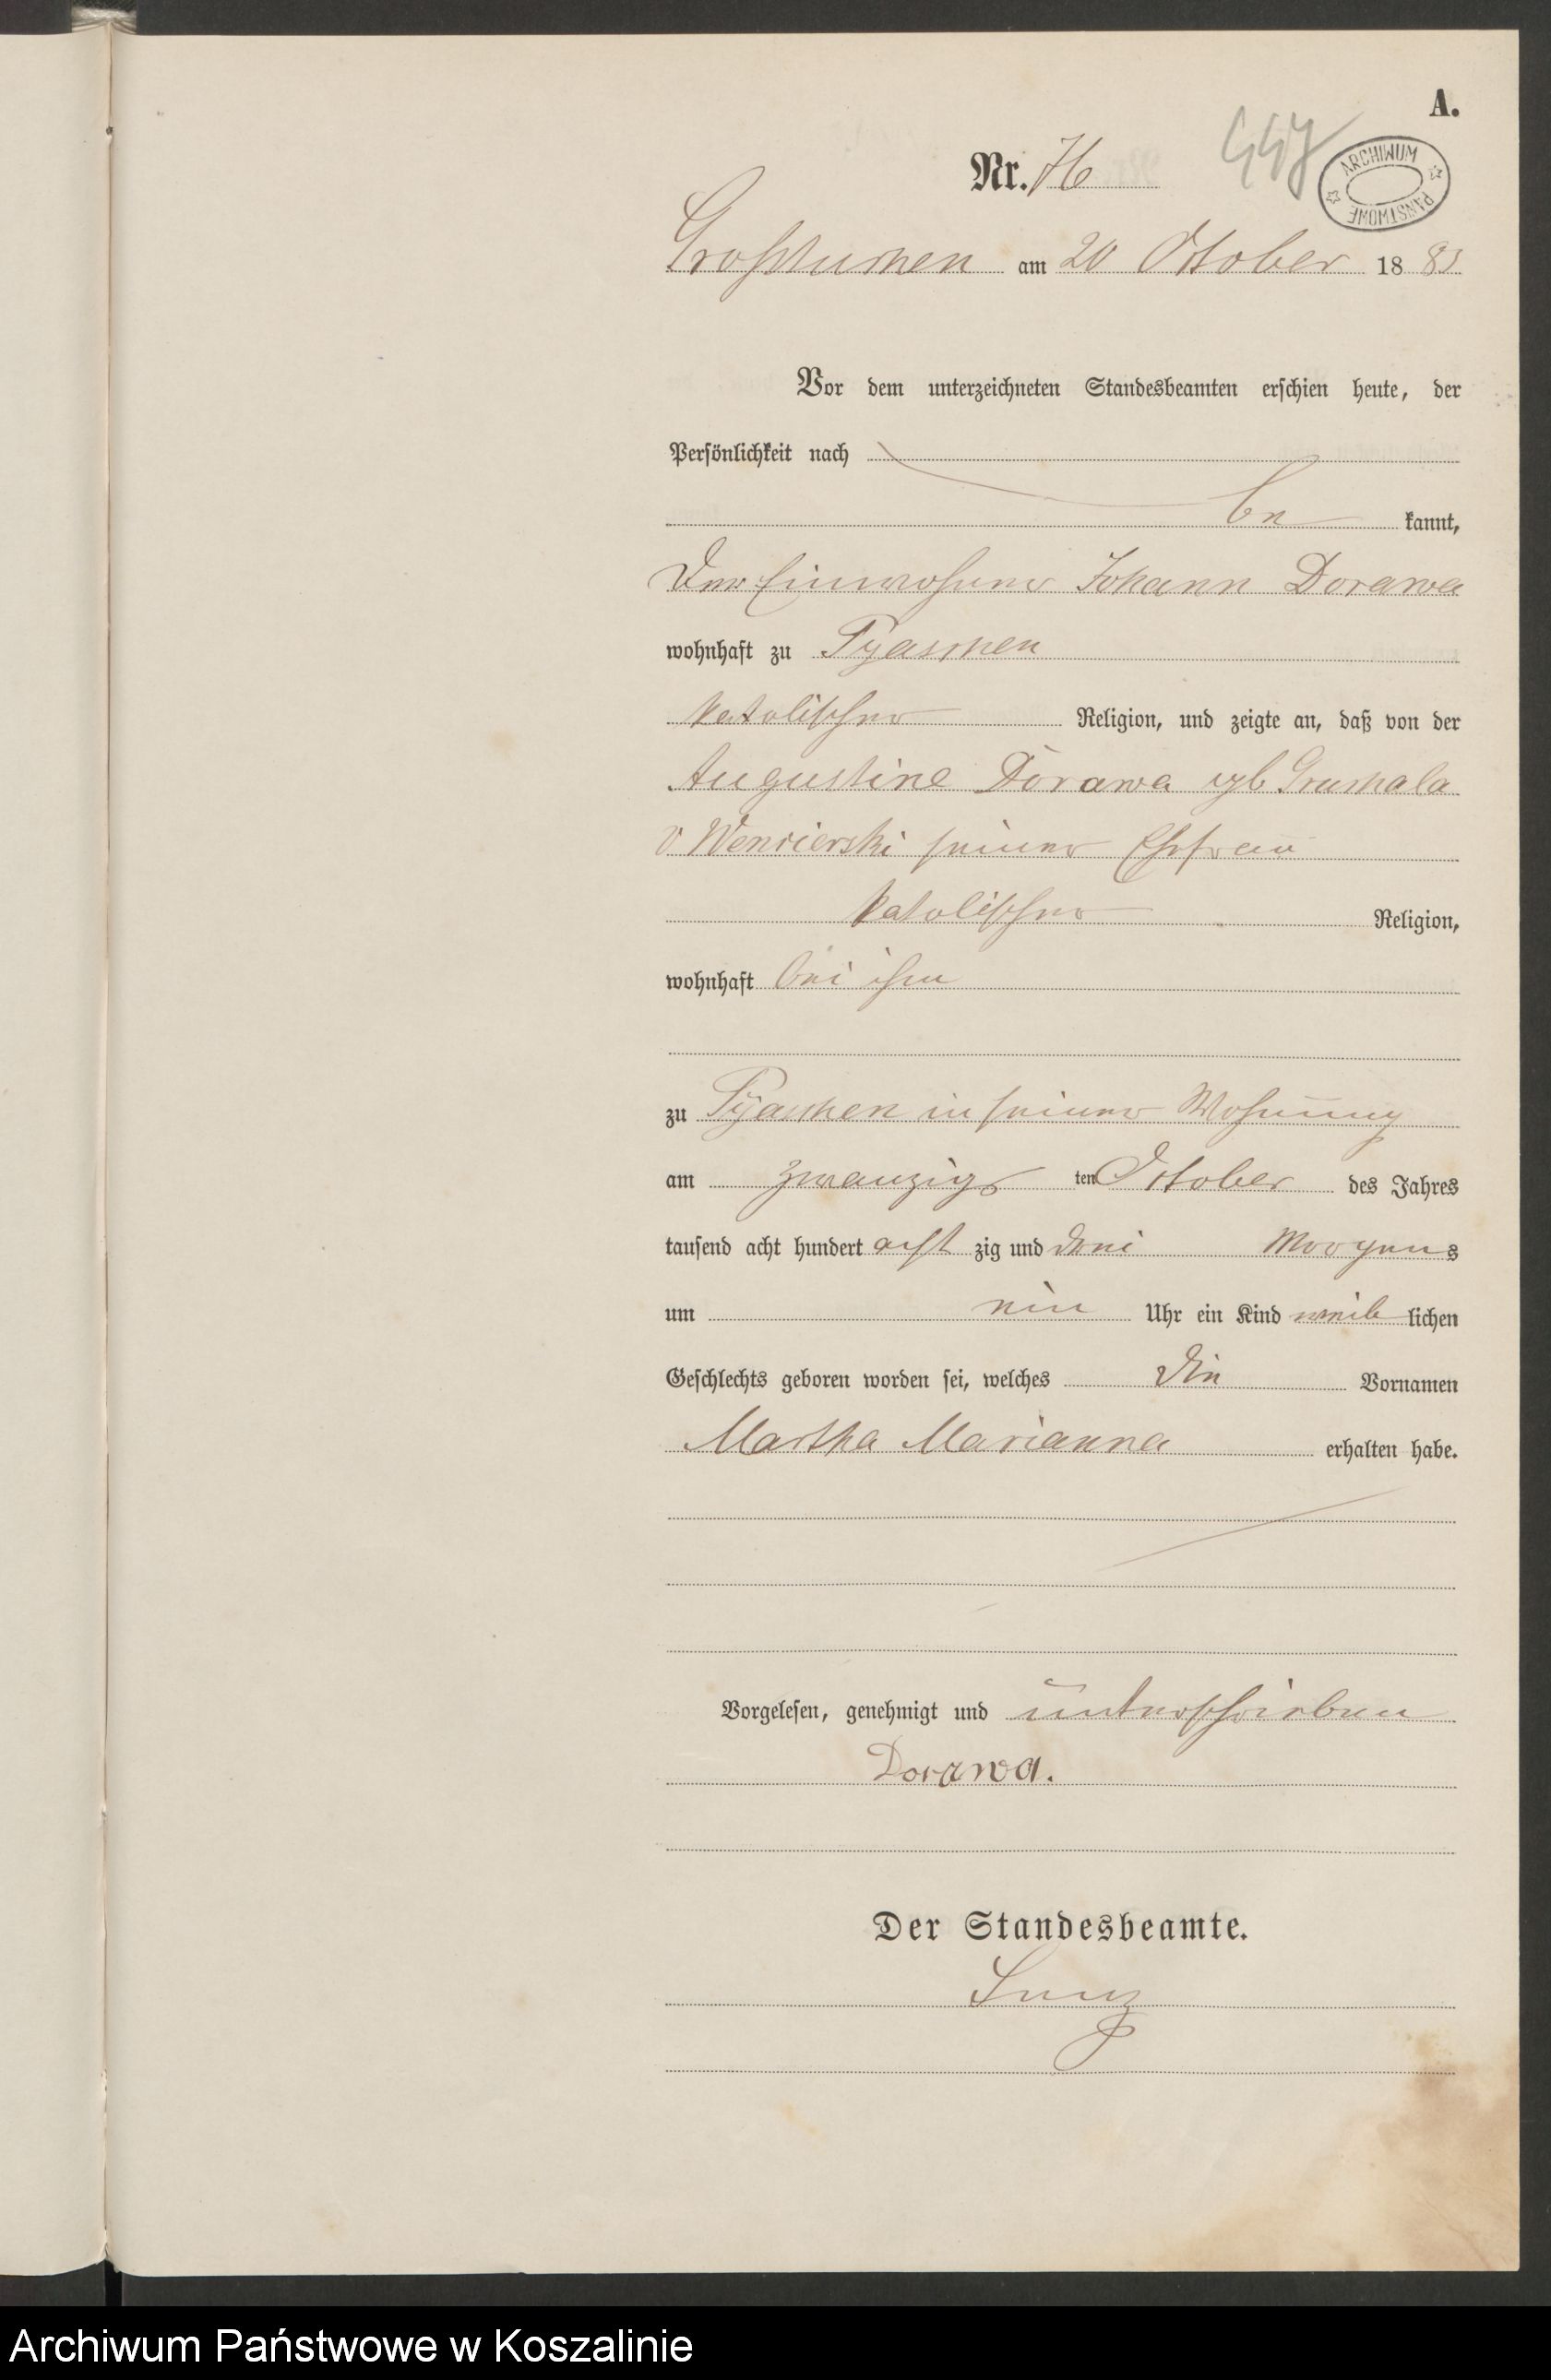 A.
Nr. 76
447
ARCHIWUM PAŃSTWOWE
Großtuchen am 20 October 1883
Vor dem unterzeichneten Standesbeamten erschien heute, der
Persönlichkeit nach
be kannt,
Der Einwohner Johann Dorawa
wohnhaft zu Pyaschen
katolischer Religion, und zeigte an, daß von der
Augustine Dorawa geb
v seiner Ehefrau
katolischer Religion,
wohnhaft bei ihm
zu Pyaschen in seiner Wohnung
am zwanzigs ten October des Jahres
tausend acht hundert acht zig und drei Morgens
um ein Uhr ein Kind weib lichen
Geschlechts geboren worden sei, welches die Vornamen
Martha Marianna erhalten habe.
Vorgelesen, genehmigt und unterschrieben
Dorawa.
Der Standesbeamte.
Archiwum Państwowe w Koszalinie